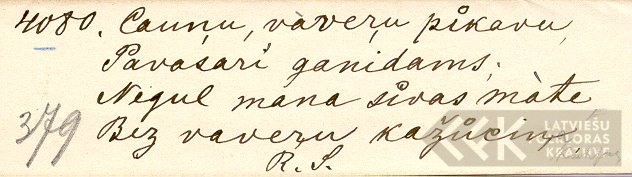 4080. Cauņu, vàveŗu pîkavu,
Pavasarî ganidams;
Negul mana sivas màte
Bez vaveŗu kažuciņ
379
R. S.
LATVIEŠU
FOLKLORAS
KRĀTUVE